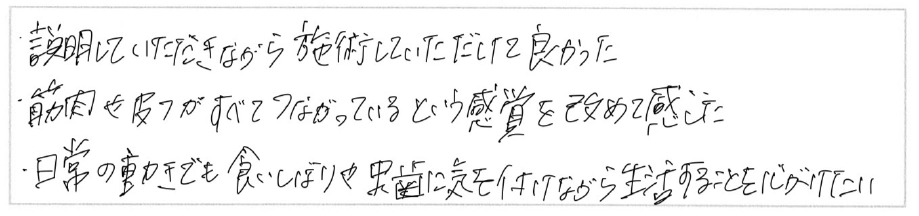 ・説明していただきながら施術していただけて良かった
・筋肉や皮フがすべてつながっているという感覚を改めて感じた
・日常の動きでも食いしばりや虫歯に気を付けながら生活することを心がけたい